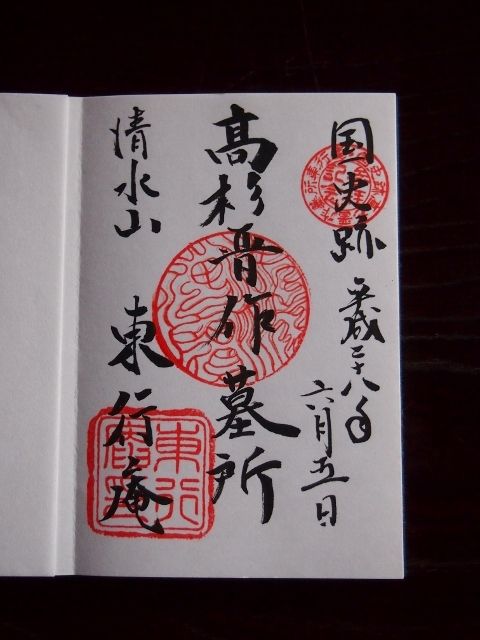 国史跡
平成二十八年
六月五日
高杉晋作墓所
清水山
東行庵